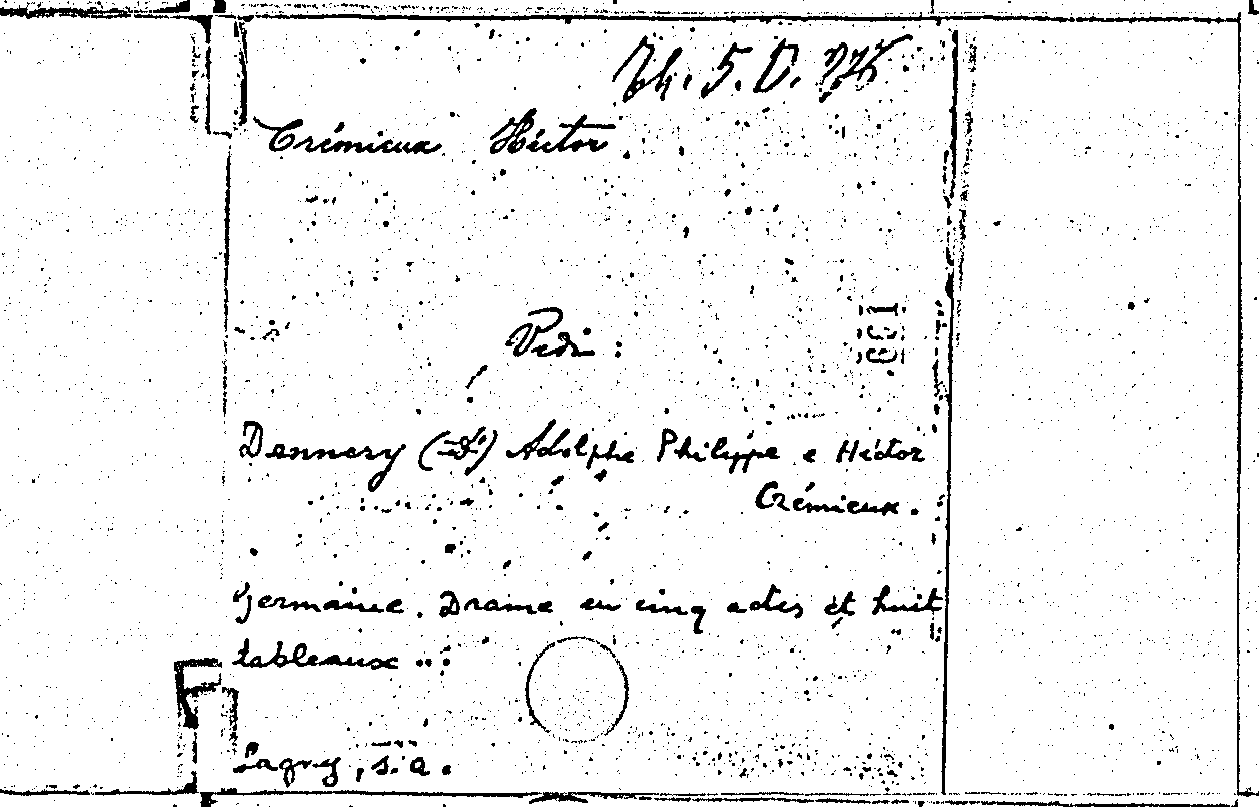 Th. 5. D. 276
Crémieux Héctor.
Vedi:
Dennery (D') Adolphe Philippe e Héctor
Crémieux.
Germaine. Drame en cinq actes et huit
tableaux ...
Lagny, s.a.